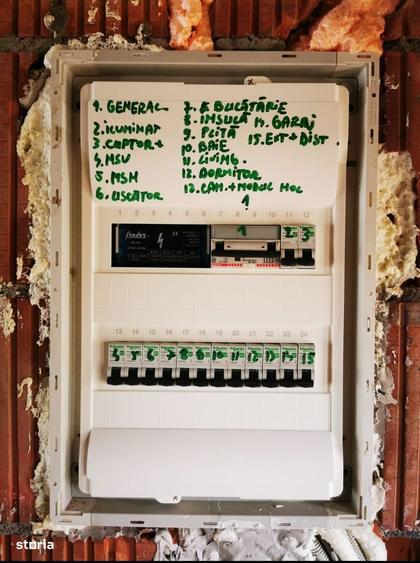 1. GENERAL
2. ILUMINAT
3. CUPTOR+
4. MSV
5. MSH
6. USCĂTOR
7. BUCĂTĂRIE
8. INSULĂ
9. PLITĂ
10. BAIE
11. LIVING.
12. DORMITOR
13. CAM.+MOBIL HOL
14. GARAJ
15. EXT+DIST
1
1 2 3 4 5 6 7 8 9 10 11 12
1 2 3
13 14 15 16 17 18 19 20 21 22 23 24
4 5 6 7 8 9 10 11 12 13 14 15
storia